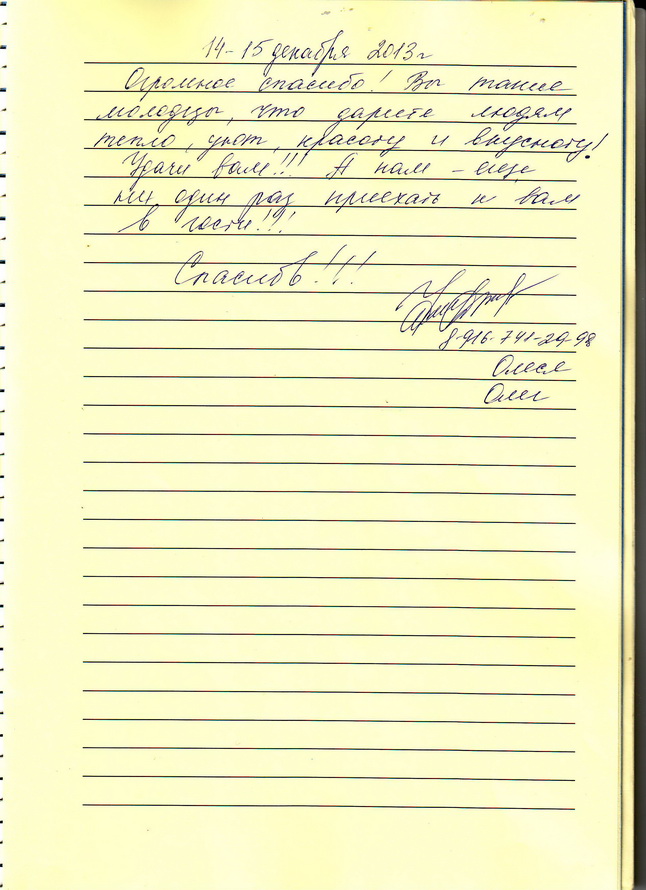 14-15 декабря 2013г
Огромное спасибо! Вы такие
молодцы, что дарите людям
тепло, уют, красоту и вкусноту!
Удачи вам!!! А нам – еще
ни один раз приехать к вам
в гости!!!
Спасибо!!!
8-916-741-29-98
Олеся
Олег